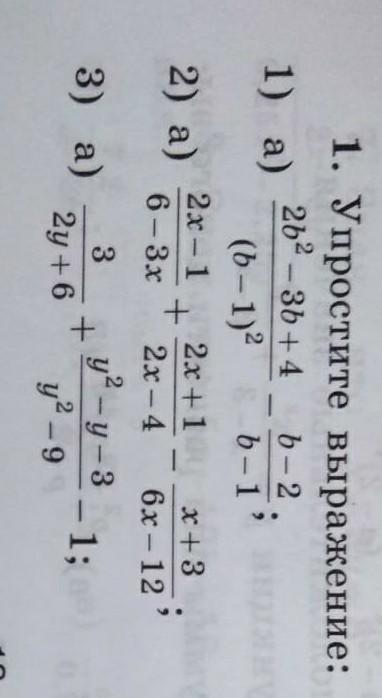 1. Упростите выражение:
1) а) \frac{2b^2 - 3b + 4}{(b - 1)^2} - \frac{b - 2}{b - 1};
2) а) \frac{2x - 1}{6 - 3x} + \frac{2x + 1}{2x - 4} - \frac{x + 3}{6x - 12};
3) а) \frac{3}{2y + 6} + \frac{y^2 - y - 3}{y^2 - 9} - 1;